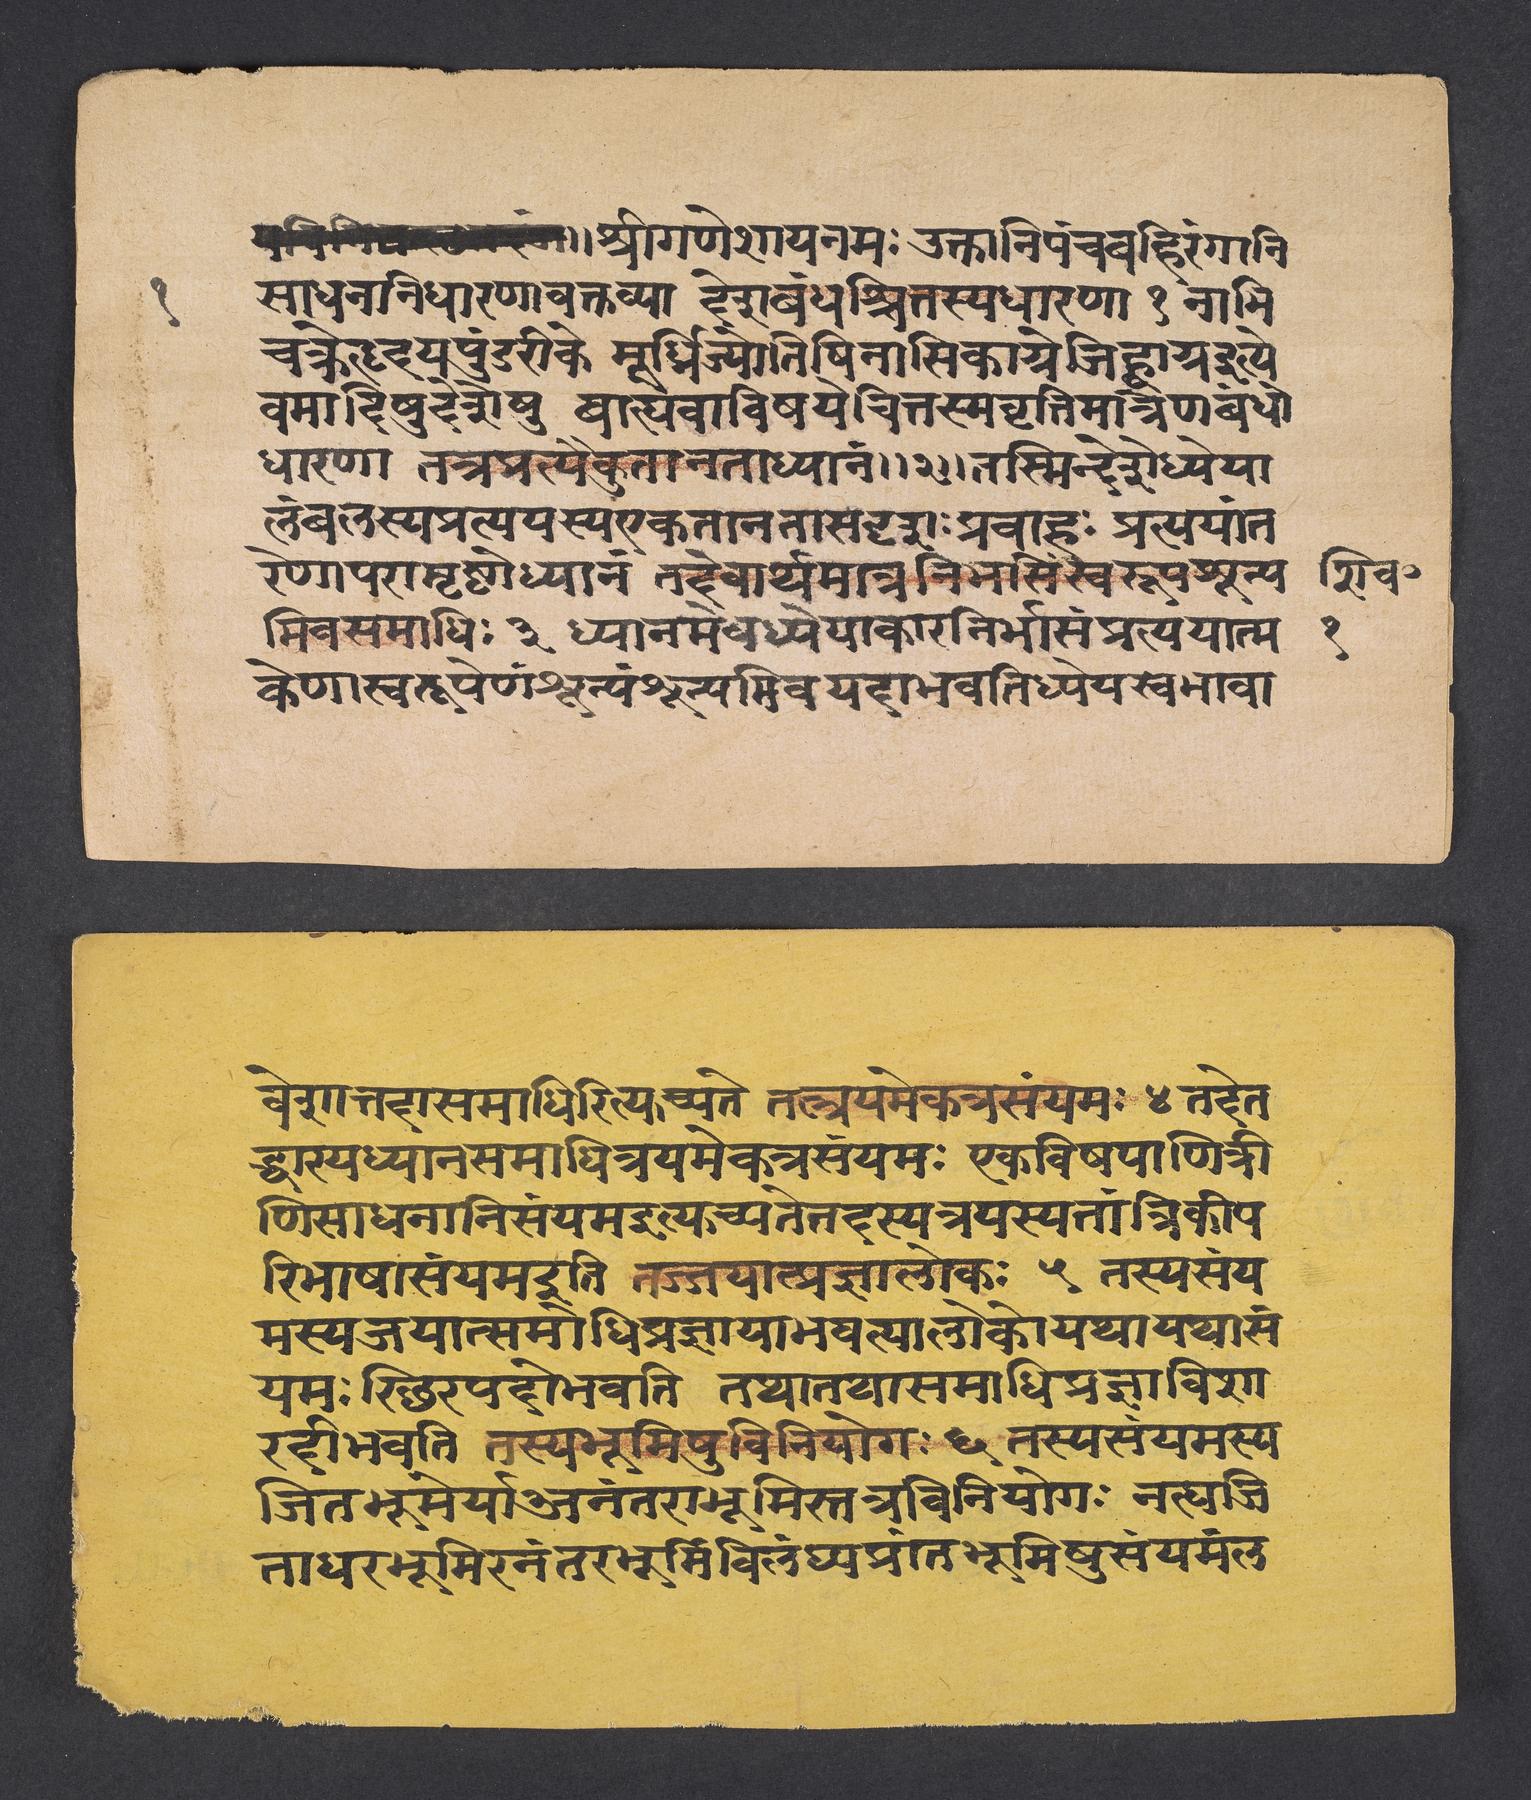 ॥श्रीगणेशायनमः उक्तानिपंचबहिरंगानि
१
साधननिधारणावक्तव्या देशबंधश्चित्तस्यधारणा १ नाभि
चक्रेहृदयपुंडरीके मूर्ध्निज्योतिषिनासिकाग्रेजिह्वाग्रइत्ये
वमादिषुदेशेषु बाह्येवाविषयेचित्तस्मवृत्तिमात्रेणबंधो
धारणा तत्रप्रत्यैकतानताध्यानं॥२॥तस्मिन्देशेध्येया
लंबलस्यप्रत्ययस्यएकतानतासदृशः प्रवाहः प्रत्ययांत
रेणापरामृष्टोध्यानं तदेवार्थमात्रनिर्भासंस्वरूपशून्य
शिव॰
मिवसमाधिः ३ ध्यानमेवध्येयाकारनिर्भासंप्रत्ययात्म
१
केणास्वरूपेणंशून्यंशून्यमिवयदाभवतिध्येयस्वभावा
वेशात्तदासमाधिरित्युच्यते तत्त्रयमेकत्रसंयमः ४ तदेत
द्धारयध्यानसमाधित्रयमेकत्रसंयमः एकविषयाणित्री
णिसाधनानिसंयमइत्युच्यतेतदस्यत्रयस्यतांत्रिकीप
रिभाषासंयमइति तज्जयात्प्रज्ञालोकः ५ तस्यसंय
मस्यजयात्समाधिप्रज्ञायाभवत्यालोकोयथायथासं
यमः स्छिरपदोभवति तथातथासमाधिप्रज्ञाविशा
रदीभवति तस्यभूमिषुविनियोगः ६ तस्यसंयमस्य
जितभूमेर्याऽनंतराभूमिस्तत्रविनियोगः नत्यजि
ताधरभूमिरनंतरभूमिंविलंघ्यप्रांतभूमिषुसंयमंल